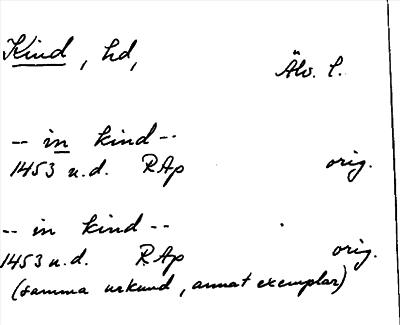 Kind, hd, Älv. l.
-- in kind --
1453 u.d. RAp orig.
-- in kind --
1453 u.d. RAp orig.
(samma urkund, annat exemplar)